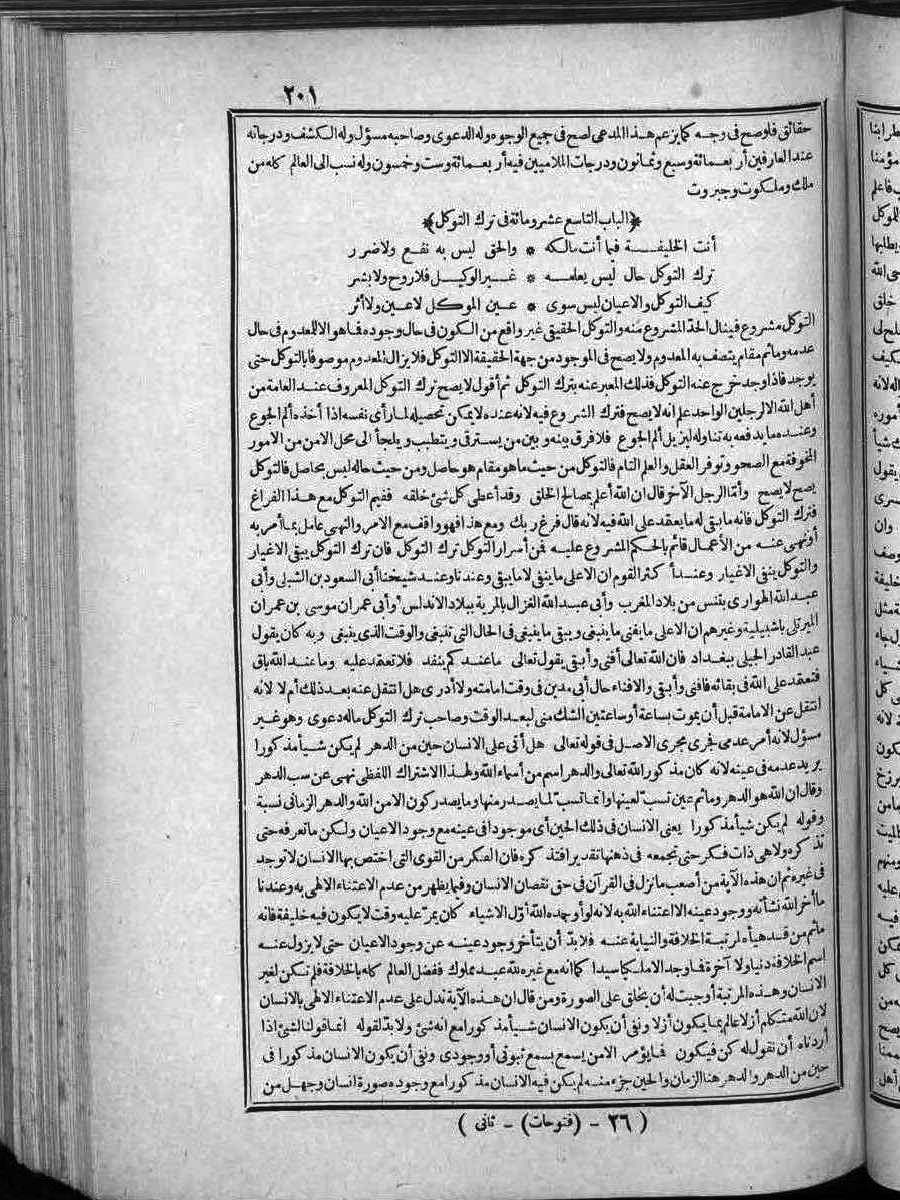 ٢٠١
حقائق فلو صح فى وجه كما يزعم هذا المدعى لصح فى جميع الوجوه وله الدعوى وصاحبه مسؤل وله الكشف ودرجاته
عند العارفين أربعمائة وسبع وثمانون ودرجات الملاميين فيه أربعمائة وست وخمسون وله نسب الى العالم كله من
ملك وملكوت وجبروت
﴿الباب التاسع عشر ومائة فى ترك التوكل﴾
أنت الخليفة فيما أنت مالكه * والحق ليس به نفع ولا ضرر
ترك التوكل حال ليس يعلمه * غير الوكيل فلا روح ولا بشر
كيف التوكل والاعيان ليس سوى * عين الموكل لا عين ولا أثر
التوكل مشروع فينال الحد المشروع منه والتوكل الحقيقى غير واقع من الكون فى حال وجوده فما هو الا للمعدوم فى حال
عدمه وما ثم مقام يتصف به المعدوم ولا يصح فى الموجود من جهة الحقيقة الا التوكل فلا يزال المعدوم موصوفا بالتوكل حتى
يوجد فاذا وجد خرج عنه التوكل فذلك المعبر عنه بترك التوكل ثم أقول لا يصح ترك التوكل المعروف عند العامة من
أهل الله الا لرجلين الواحد علم انه لا يصح فترك الشروع فيه لانه عنده لا يمكن تحصيله لما رأى نفسه اذا أخذه ألم الجوع
وعنده ما يدفعه به تناوله ليزيل ألم الجوع فلا فرق بينه وبين من يسترقى ويتطبب ويلجأ الى محل الامن من الامور
المخوفة مع الصحو وتوفر العقل والعلم التام فالتوكل من حيث ما هو مقام هو حاصل ومن حيث حاله ليس بحاصل فالتوكل
يصح لا يصح وأما الرجل الآخر قال ان الله أعلم بمصالح الخلق وقد أعطى كل شئ خلقه ففيم التوكل مع هذا الفراغ
فترك التوكل فانه ما بقى له ما يعتمد على الله فيه لانه قال فرغ ربك ومع هذا فهو واقف مع الامر والنهى عامل بما أمر به
أو نهى عنه من الأعمال قائم بالحكم المشروع عليه فمن أسرار التوكل ترك التوكل فان ترك التوكل يبقى الاغيار
والتوكل ينفى الاغيار وعند أكثر القوم ان الاعلى ما ينفى لا ما يبقى وعندنا وعند شيخنا أبى السعود بن الشبلى وأبى
عبد الله الهوارى بتنس من بلاد المغرب وأبى عبد الله الغزال بالمرية ببلاد الاندلس وأبى عمران موسى بن عمران
الميرتلى باشبيلية وغيرهم ان الاعلى ما يفنى ما ينبغى ويبقى ما ينبغى فى الحال التى تنبغى والوقت الذى ينبغى وبه كان يقول
عبد القادر الجيلى ببغداد فان الله تعالى أفنى وأبقى يقول تعالى ما عندكم ينفد فلا تعتمد عليه وما عند الله باق
فتعتمد على الله فى بقائه فافنى وأبقى والافناء حال أبى مدين فى وقت امامته ولا أدرى هل انتقل عنه بعد ذلك أم لا لانه
انتقل عن الامامة قبل أن يموت بساعة أو ساعتين الشك منى لبعد الوقت وصاحب ترك التوكل ما له دعوى وهو غير
مسؤل لانه أمر عدمى فجرى مجرى الاصل فى قوله تعالى هل أتى على الانسان حين من الدهر لم يكن شيأ مذكورا
يريد عدمه فى عينه لانه كان مذكورا لله تعالى والدهر اسم من أسماء الله ولهذا الاشتراك اللفظى نهى عن سب الدهر
وقال ان الله هو الدهر وما ثم عين تسب لعينها وانما تسب لما يصدر منها وما يصدر كون الا من الله والدهر الزمانى نسبة
وقوله لم يكن شيأ مذكورا يعنى الانسان فى ذلك الحين أى موجودا فى عينه مع وجود الاعيان ولكن ما تعرفه حتى
تذكره ولا هى ذات فكر حتى تجمعه فى ذهنها تقديرا فتذكره فان الفكر من القوى التى اختص بها الانسان لا توجد
فى غيره ثم ان هذه الآية من أصعب ما نزل فى القرآن فى حق نقصان الانسان وفيما يظهر من عدم الاعتناء الالهى به وعندنا
ما أخر الله نشأته ووجود عينه الا اعتناء الله به لانه لو أوجده الله أول الاشياء كان يمر عليه وقت لا يكون فيه خليفة فانه
ما ثم من قد هيأه لمرتبة الخلافة والنيابة عنه فلا بد أن يتأخر وجود عينه عن وجود الاعيان حتى لا يزول عنه
اسم الخلافة دنيا ولا آخرة فما وجد الا ملكا سيدا كما انه مع غيره لله عبد مملوك ففضل العالم كله بالخلافة فلم تكن لغير
الانسان وهذه المرتبة أوجبت له أن يخلق على الصورة ومن قال ان هذه الآية تدل على عدم الاعتناء الالهى بالانسان
لان الله متكلم أزلا عالم بما يكون أزلا ونفى أن يكون الانسان شيأ مذكورا مع انه شئ ولا بد لقوله انما قولنا لشئ اذا
أردناه أن نقول له كن فيكون فما يؤمر الا من يسمع بسمع ثبوتى أو وجودى ونفى أن يكون الانسان مذكورا فى
حين من الدهر والدهر هنا الزمان والحين جزء منه لم يكن فيه الانسان مذكورا مع وجوده صورة انسان وجهل من
( ٢٦ - (فتوحات) - ثانى )